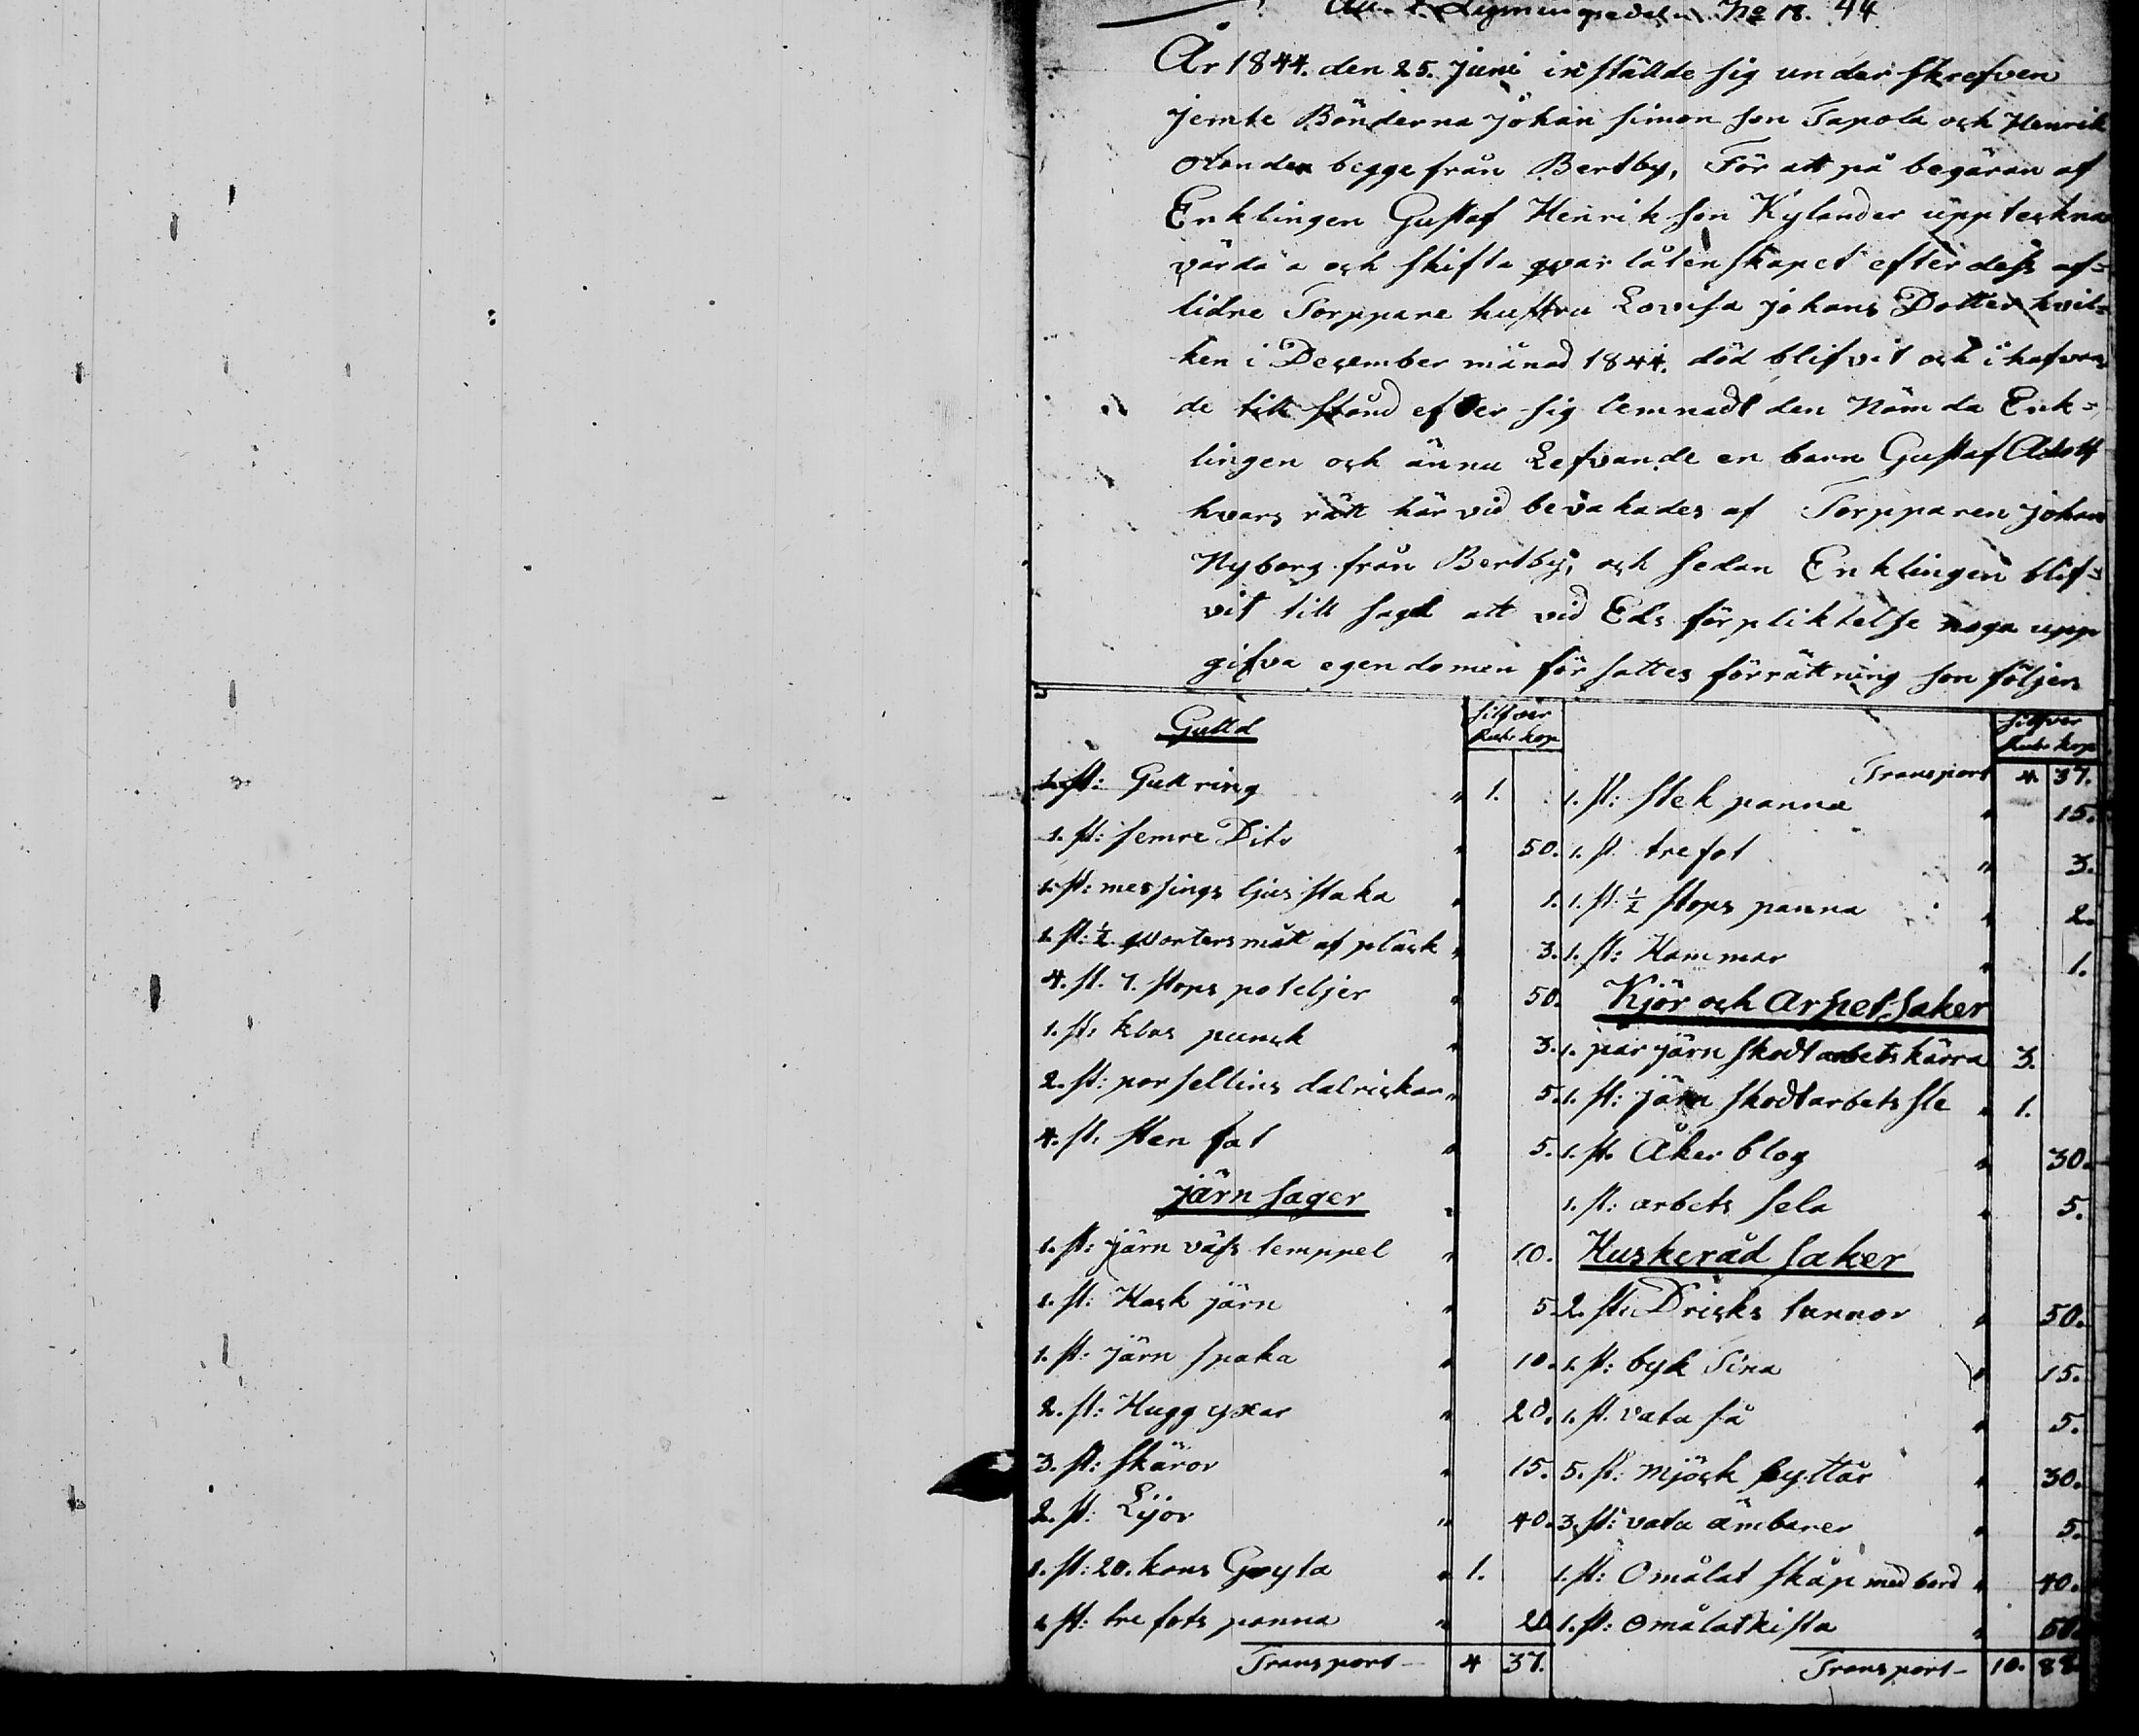 No 18. 44
År 1844. den 25. Juni inställde sig under skrefven
jemte Bönderna Johan Simon son Tapola och Henrik
Olander begge från Bertby, För att på begäran af
Enklingen Gustaf Henrik son Kylander uppteckna
värdä a och skifta qvar låtenskapet efter dess af=
lidne Torppare hustru Lovisa Johans Dotter hvil=
ken i December månad 1844. död blifvit och i hafvan
de till stånd efter sig lemnadt den Nämda Enk=
lingen och ännu Lefvande en barn Gustaf Adolf
hvars rätt här vid bevakades af Torpparen Johan
Nyborg från Bertby, och sedan Enklingen blif=
vit till sagd att vid Eds förpliktelse noga upp
gifva egendomen för sattes förrättning son följer
Gulld
silfver
Rub: kop
1. st: Gull ring " 1.
1. st: semre Dito " 50.
1. st: messings ljus staka " 1.
1. st: ½ qvorters mått af pläck " 3.
4. st. 1. stops poteljer " 50.
1. st: klas punck " 3.
2. st: porsellins dalrickar " 5.
4. st: sten fat " 5.
Järn sager "
1. st: Järn väfs temppel " 10.
1. st: Hack järn " 5
1. st: Järn spaka " 10.
2. st: Hugg yxar " 20.
3. st: skäror " 15.
2. st: Lijor " 40.
1. st: 20. kans Gryta " 1.
1 st: tre fots panna " 20
Transport - 4 37.
silfver
Rub: kop
Transport 4. 37.
1. st: stek panna " 15.
1. st. trefot " 3.
1. st. ½ stops panna " 2.
1. st: Hammar " 1.
Kjör och Arpet saker
1. par järn skodt arbets kärra 3.
1. st: järn skodt arbets sle " 1.
1. st. Åker blog " 30.
1. st: arbets sela " 5.
Huskeråd saker
2. st: Dricks tannor " 50.
1. st: byk Tina " 15.
1. st. vata så " 5.
5. st: Mjöck byttar " 30.
3. st: vata ämbarer " 5.
1. st: Omålat skåp med bord " 40.
1. st: Omålat kista " 50.
Transport - 10. 88